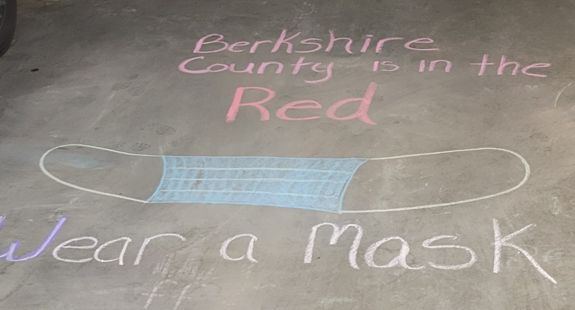 Berkshire
County is in the
Red
Wear a Mask